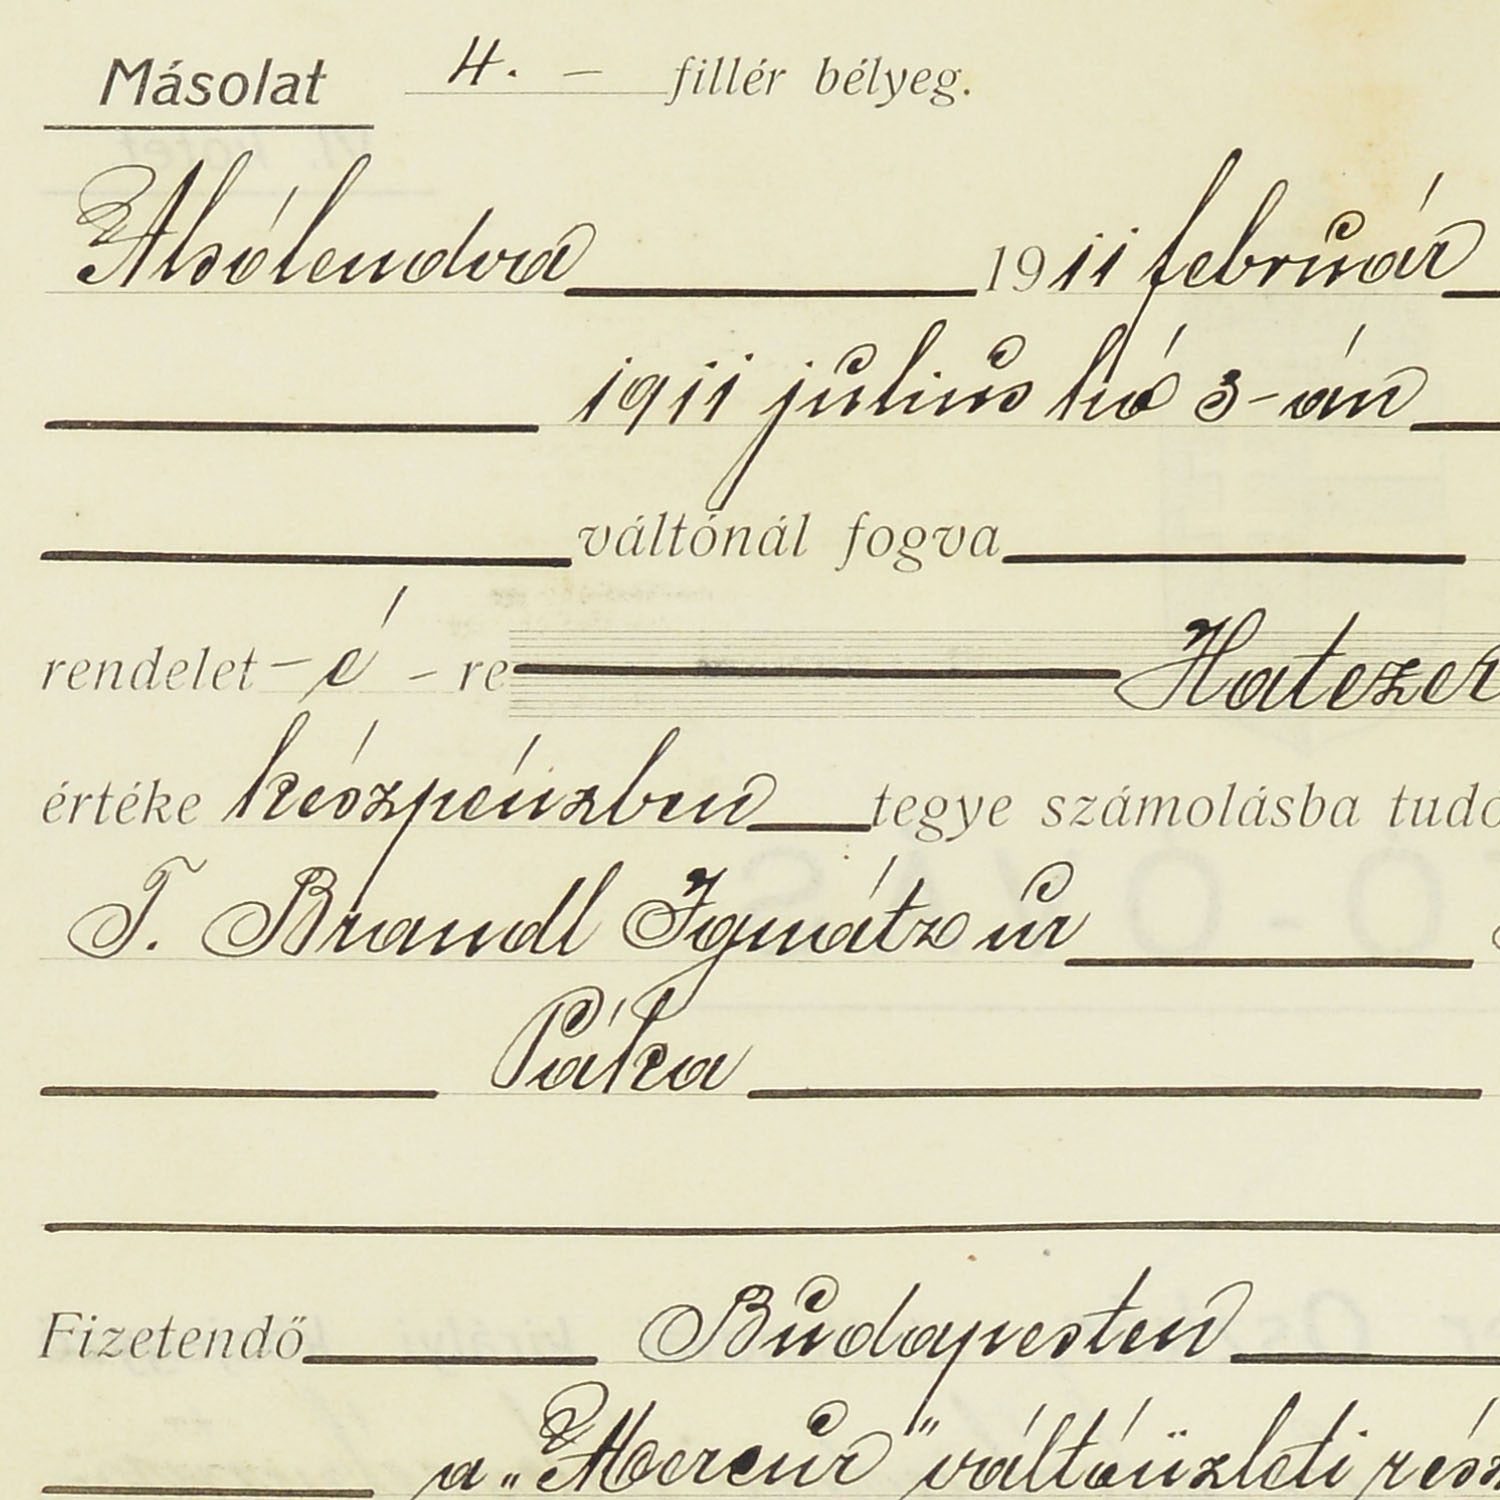 Másolat 4. — fillér bélyeg.
Alsólendva 1911 február
1911 július hó 3-án
váltónál fogva
rendelet - é - re Hatezer
értéke készpénzben tegye számolásba
T. Brandl Ignátz úr
Páka
Fizetendő Budapesten
a „Mercur” váltóüzleti